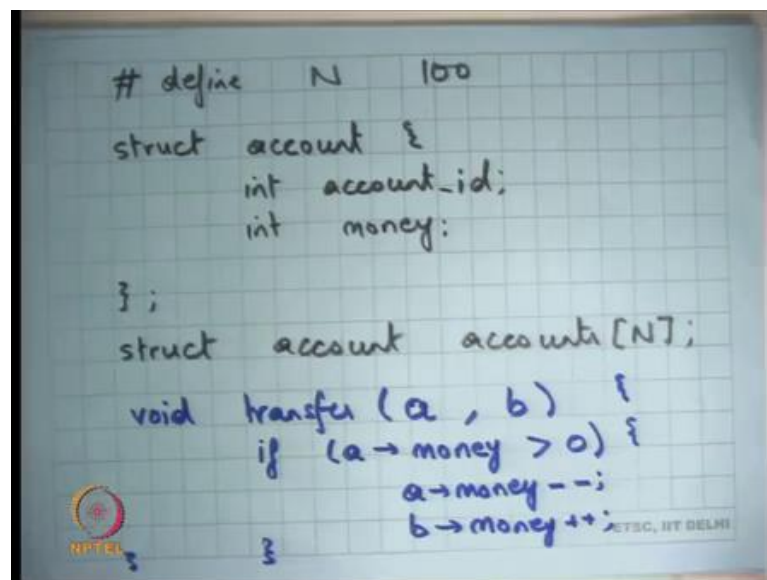 # define N 100
struct account {
int account_id;
int money;
};
struct account accounts[N];
void transfer (a, b) {
if (a→money > 0) {
a→money--;
b→money++;
}
}
NPTEL
ETSC, IIT DELHI